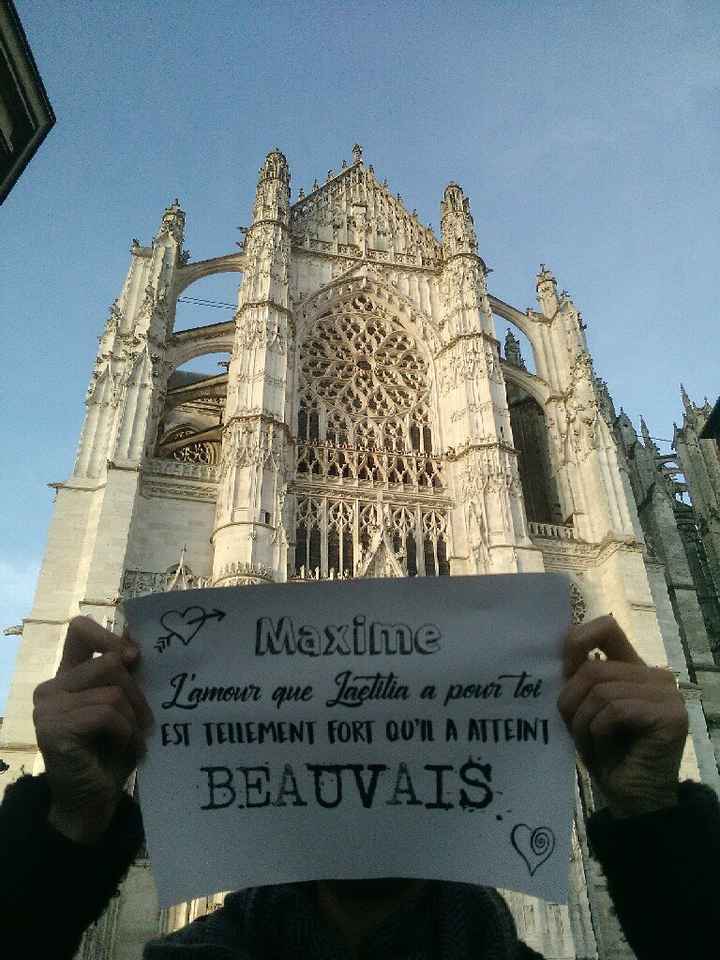 Maxime
L'amour que Laetitia a pour toi
EST TELLEMENT FORT QU'IL A ATTEINT
BEAUVAIS